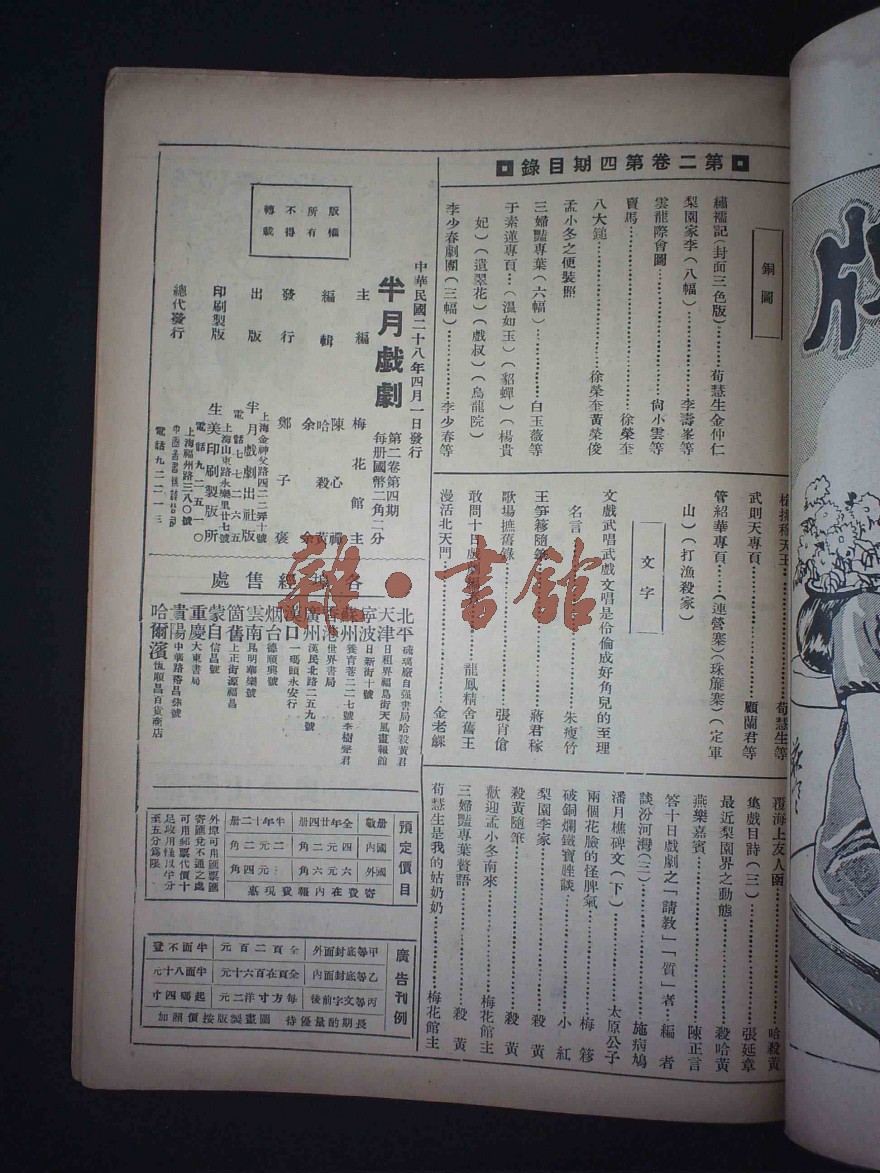 第二卷第四期目錄
銅圖
繡襦記(封面三色版)……荀慧生金仲仁
梨園家李(八幅)……李壽峯等
雲龍際會圖……尙小雲等
賣馬……徐榮奎
八大鎚……徐榮奎黃榮俊
孟小冬之便裝照
三婦豔專葉(六幅)……白玉薇等
于素蓮專頁…(溫如玉)(貂蟬)(楊貴
妃)(遺翠花)(戲叔)(烏龍院)
李少春劇團(三幅)……李少春等
天王……荀慧生等
武則天專頁……顧蘭君等
管紹華專頁…(連營寨)(珠簾寨)(定軍
山)(打漁殺家)
文字
文戲武唱武戲文唱是伶倫成好角兒的至理
名言……朱瘦竹
王笋簃隨筆……蔣君稼
歌場摭舊錄……張肖傖
敢問十日戲劇……龍鳳精舍舊王
漫活北天門……金老鰥
覆海上友人函……哈殺黃
集戲目詩(三)……張延章
最近梨園界之動態……殺哈黃
燕樂嘉賓……陳正言
答十日戲劇之「請教」「質」者…編者
談汾河灣(三)……施病鳩
潘月樵碑文(下)……太原公子
兩個花臉的怪脾氣……梅簃
破銅爛鐵寶娌談……小紅
梨園李家……殺黃
殺黃隨筆……殺黃
歡迎孟小冬南來……梅花館主
三婦豔專葉贅語……殺黃
荀慧生是我的姑奶奶……梅花館主
版權所有
不得轉載
中華民國二十八年四月一日發行
半月戲劇
第二卷第四期
每册國幣二角二分
主編 梅花館主
編輯 陳心禪 哈殺黃 余余
發行 鄭子褒
出版 半月戲劇出社版
上海金神父路四二三弄十號
電話七七二六五
印刷製版 生美印刷製版所
上海山東路永樂里廿七號
電話九二五一〇
總代發行
上海福州路三八〇號
電話九二二一三
各埠經售處
北平 琉璃廠自强書局哈殺黃君
天津 日租界福島街天風畫報館
寧波 日新街十號
蘇州 養育巷二二七號李樹聲君
香港 世界書局
廣州 漢民北路二五九號
漢口 一碼頭永安行
烟台 德順興號
雲南 昆明華樂號
箇舊 上正街源福昌
蒙自 信昌號
重慶 大東書局
貴陽 中華路裔昌泰號
哈爾濱 恆順昌百貨商店
預定價目
册數 全年廿四册 半年十二册
國內 四元二角 二元二角
國外 六元六角 三元四角
寄費在內報費現惠
外埠可用匯票匯
寄匯兌不通之處
可用郵票代價十
足收用惟以半分
至五分爲限
廣告刊例
甲等底封面外 全頁二百元 半面不登
乙等底封面內 全頁在百六十元 半面八十元
丙等文字前後 每方寸洋二元 起碼四寸
長期酌量優待 圖畫製版按價照加
雜·書館